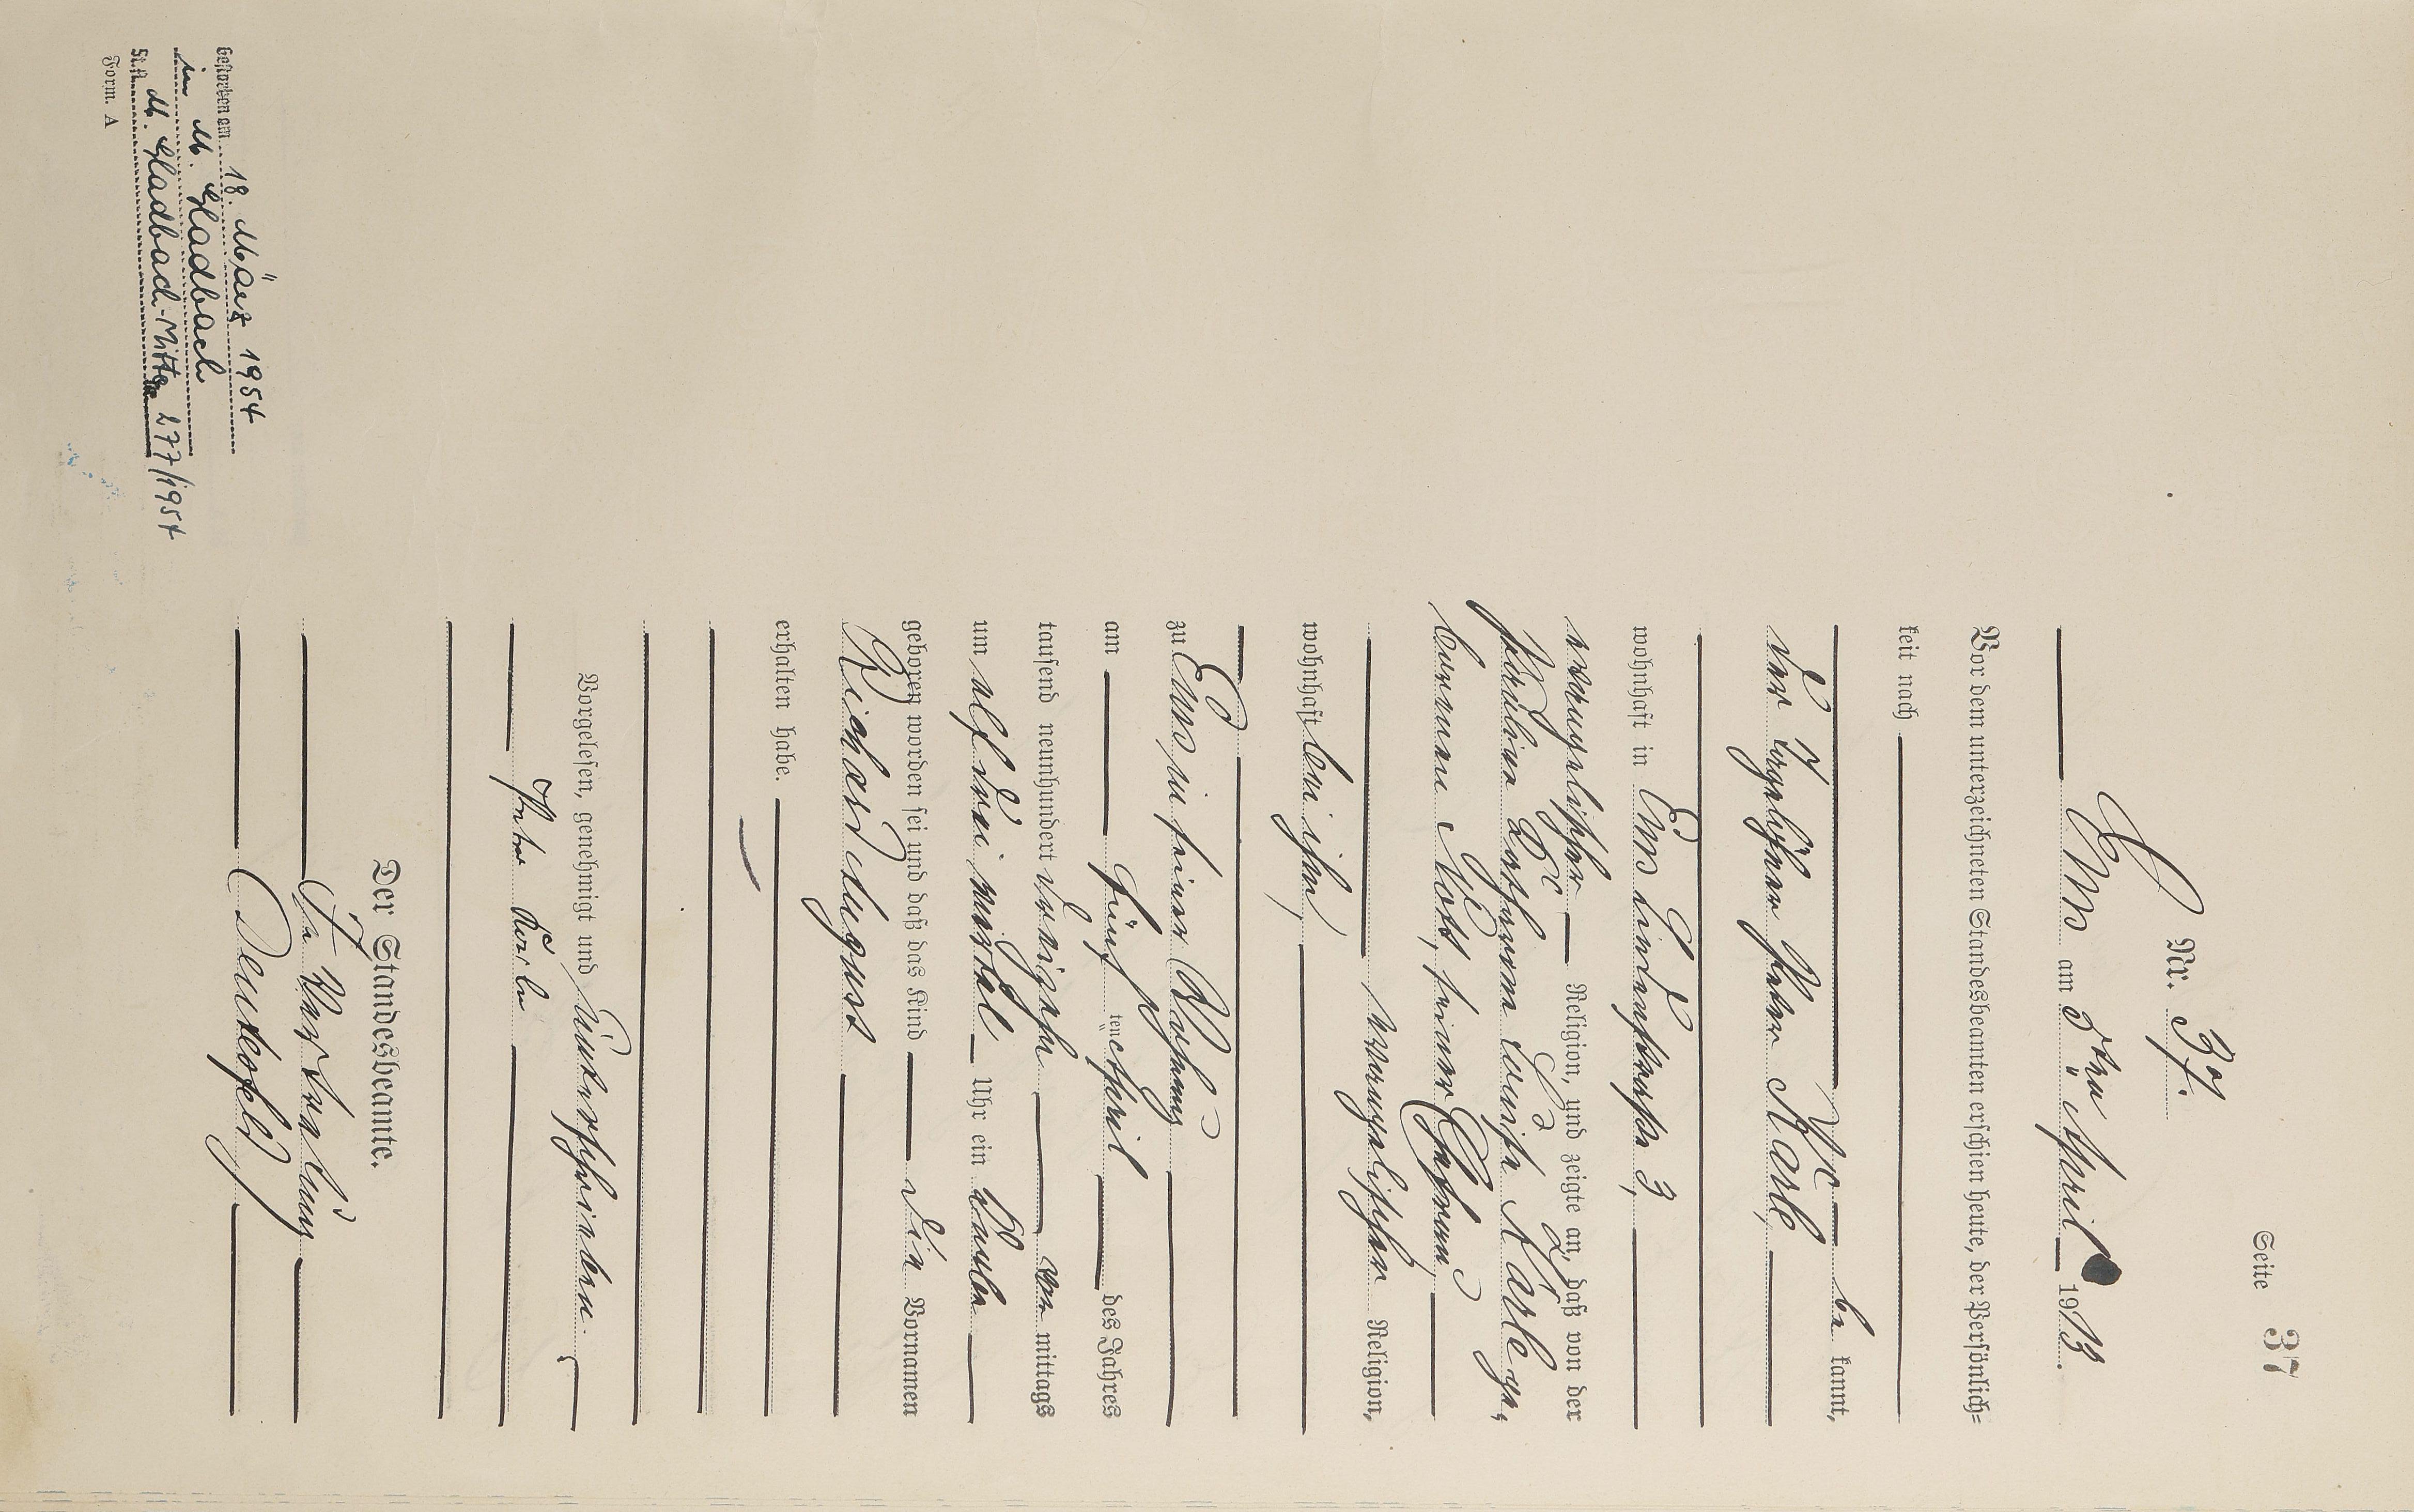 Seite 37
Nr. 37.
Ems am 8ten April 1913.
Vor dem unterzeichneten Standesbeamten erschien heute, der Persönlich-
keit nach
be kannt,
der Peter Korb,
wohnhaft in Ems Lindenstraße 3,
evangelischer Religion, und zeigte an, daß von der
Pauline Louise Korb ge-
borenen Noll, seiner Ehefrau,
evangelischer Religion,
wohnhaft bei ihm,
zu Ems in seiner Wohnung
am fünften April des Jahres
tausend neunhundert dreizehn vor mittags
um elf drei viertel Uhr ein Knabe
geboren worden sei und daß das Kind die Vornamen
Richard August
erhalten habe.
Vorgelesen, genehmigt und unterschrieben.
Peter Korb
Der Standesbeamte.
In Vertretung
Gestorben am 18. März 1954
in M. Gladbach
St.A. M. Gladbach-Mitte 277/1954
Form. A